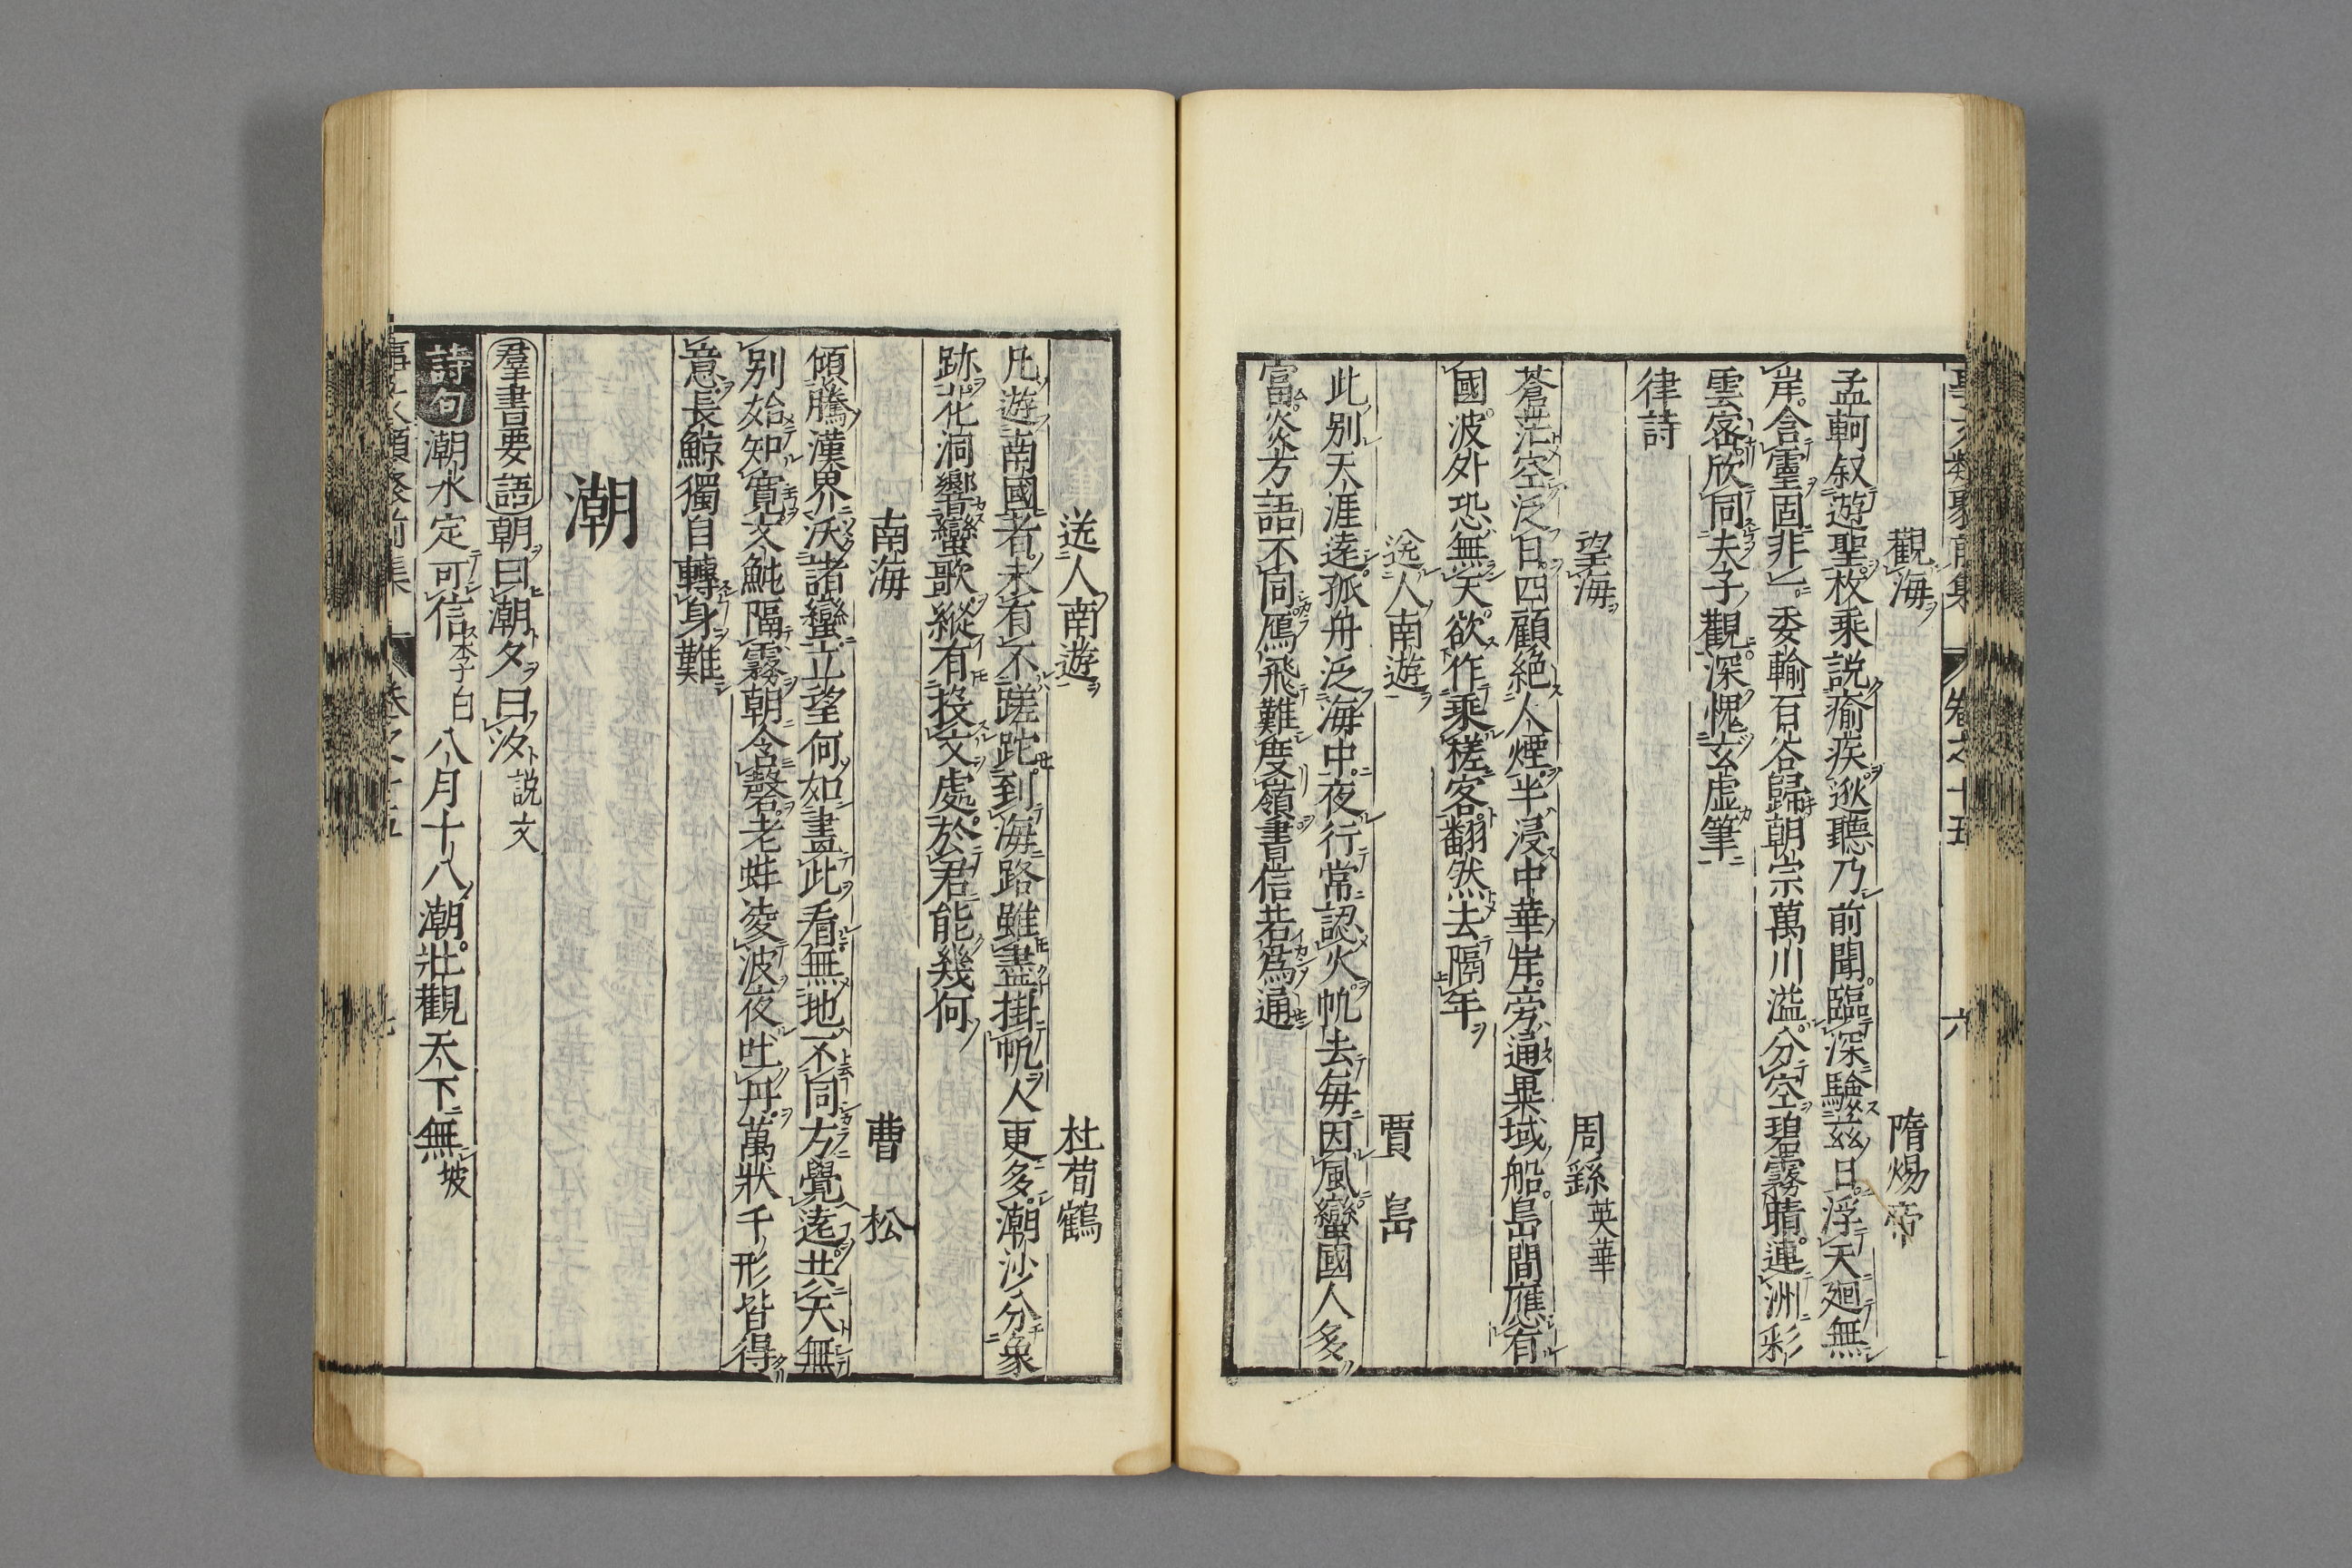 事文類聚前集 卷之十五 六
觀海 隋煬帝
孟軻叙遊聖枚乘説瘉疾逖聽乃前聞臨深驗茲日浮天廻無
岸含靈固非一委輸百谷歸朝宗萬川溢分空碧霧晴連洲彩
雲密欣同夫子觀深愧玄虛筆
律詩
望海 周繇英華
蒼茫空泛日四顧絶人煙半浸中華岸旁通異域船島間應有
國波外恐無天欲作乘槎客翻然去隔年
送人南遊 賈島
此別天涯遠孤舟泛海中夜行常認火帆去每因風蠻國人多
富炎方語不同鴈飛難度嶺書信若爲通
送人南遊 杜荀鶴
凡遊南國者未有不蹉跎到海路雖盡掛帆人更多潮沙分象
跡花洞響蠻歌縱有投文處於君能幾何
南海 曹松
傾騰漢界沃諸蠻立望何如畫此看無地不同方覺遠共天無
別始知寬文魮隔霧朝含磬老蚌凌波夜吐丹萬狀千形皆得
意長鯨獨自轉身難
潮
羣書要語 朝曰潮夕曰汐説文
詩句 潮水定可信李白 八月十八潮壯觀天下無坡
事文類聚前集 卷之十五 七